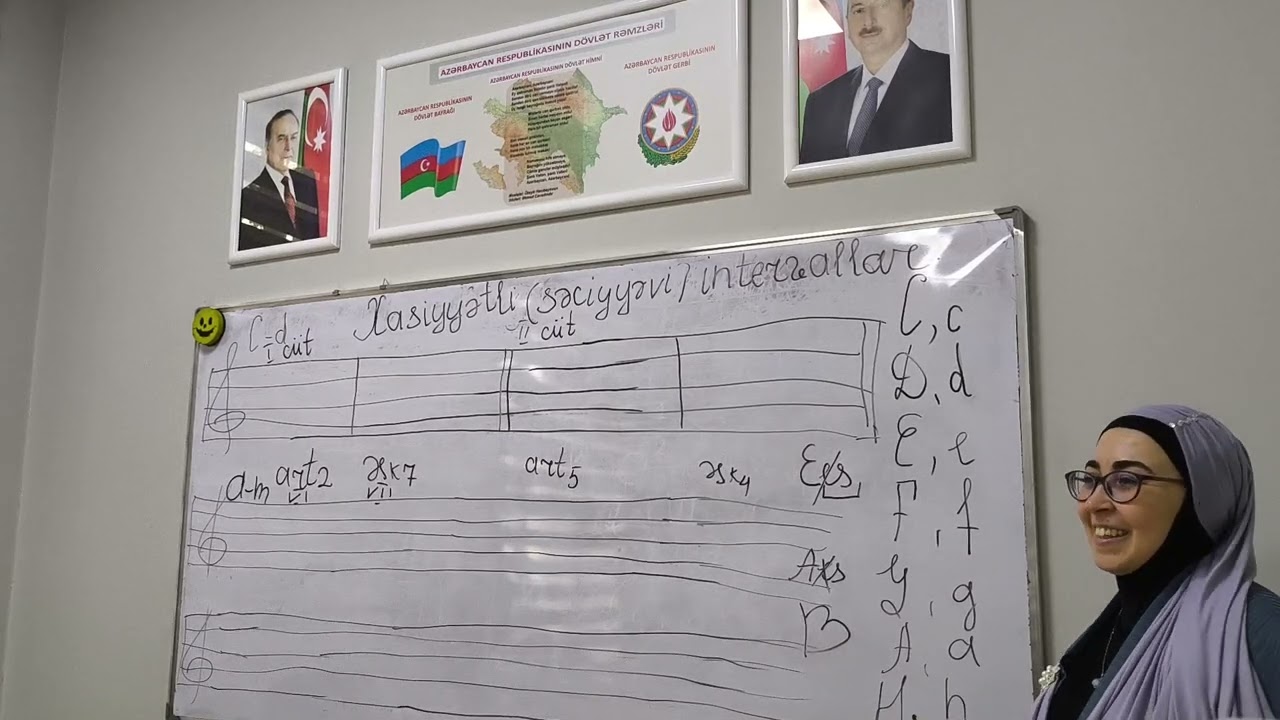 AZƏRBAYCAN RESPUBLİKASININ DÖVLƏT RƏMZLƏRİ
AZƏRBAYCAN RESPUBLİKASININ DÖVLƏT BAYRAĞI
AZƏRBAYCAN RESPUBLİKASININ DÖVLƏT HİMNİ
AZƏRBAYCAN RESPUBLİKASININ DÖVLƏT GERBİ
Xasiyyətli (səciyyəvi) intervallar
C-d
I cüt
II cüt
a-m art2 əsk7 art5 əsk4
VI VII
Es
As
B
C, c
D, d
E, e
F, f
G, g
A, a
H, h